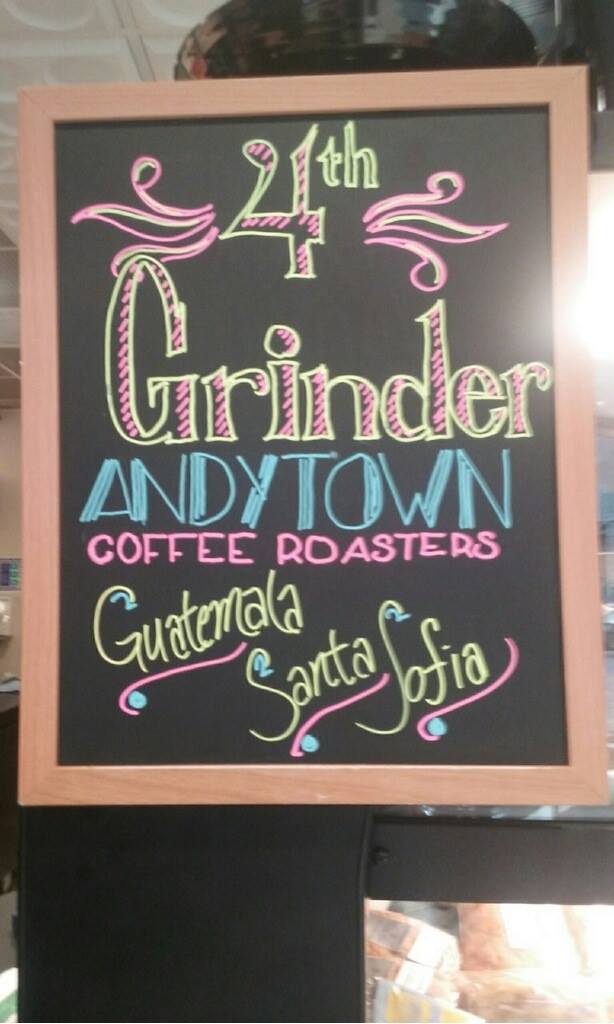 4th
Grinder
ANDYTOWN
COFFEE ROASTERS
Guatemala
Santa Sofia